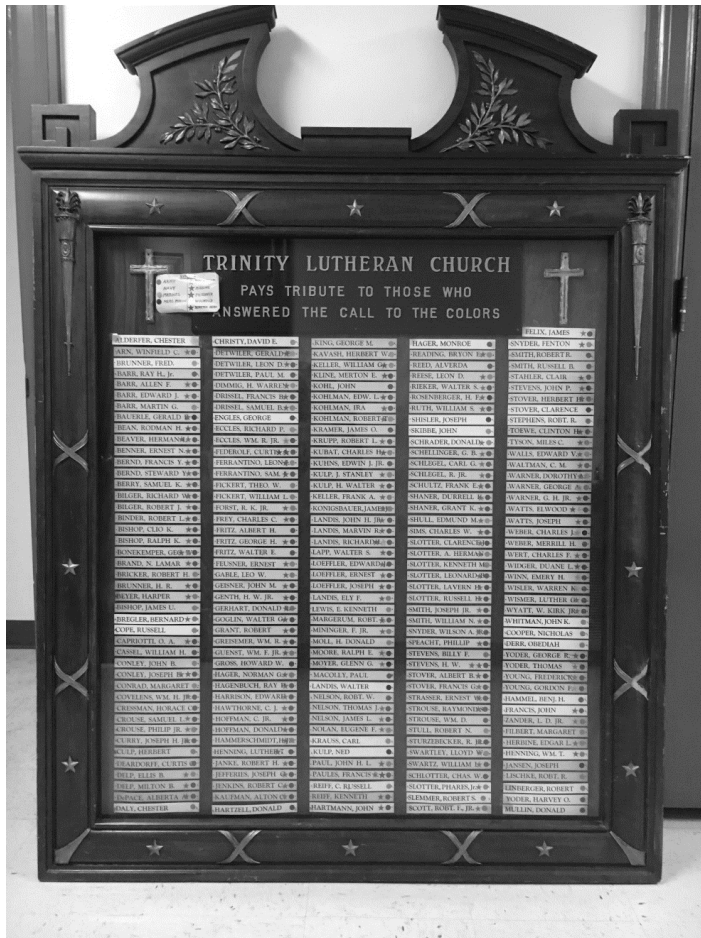 TRINITY LUTHERAN CHURCH
PAYS TRIBUTE TO THOSE WHO
ANSWERED THE CALL TO THE COLORS
ALDERFER, CHESTER
ARN, WINFIELD C.
BRUNNER, FRED.
BARR, RAY H., Jr.
BARR, ALLEN F.
BARR, EDWARD J.
BARR, MARTIN G.
BAUERLE, GERALD
BEAN, RODMAN H.
BEAVER, HERMAN
BENNER, ERNEST N.
BERND, FRANCIS Y.
BERND, STEWARD Y.
BERRY, SAMUEL K.
BILGER, RICHARD W.
BILGER, ROBERT J.
BINDER, ROBERT L.
BISHOP, CLIO K.
BISHOP, RALPH K.
BONEKEMPER, GEO.
BRAND, N. LAMAR
BRICKER, ROBERT H.
BRUNNER, H. R.
BEYER, HARPER
BISHOP, JAMES U.
BREGLER, BERNARD
COPE, RUSSELL
CAPRIOTTI, O. A.
CASSEL, WILLIAM H.
CONLEY, JOHN B.
CONLEY, JOSEPH B.
CONRAD, MARGARET
COVELENS, WM. H. JR.
CRESSMAN, HORACE
CROUSE, SAMUEL I.
CROUSE, PHILIP JR.
CURRY, JOSEPH H. JR.
CULP, HERBERT
DEARDORFF, CURTIS
DELP, ELLIS B.
DELP, MILTON B.
DePACE, ALBERTA
DALY, CHESTER
CHRISTY, DAVID E.
DETWILER, GERALD
DETWILER, LEON D.
DETWILER, PAUL M.
DIMMIG, H. WARREN
DRISSEL, FRANCIS B.
DRISSEL, SAMUEL B.
ENGLES, GEORGE
ECCLES, RICHARD P.
ECCLES, WM. R. JR.
FEDEROLF, CURTIS
FERRANTINO, LEON
FERRANTINO, SAM.
FICKERT, THEO. W.
FICKERT, WILLIAM I.
FORST, R. K. JR.
FREY, CHARLES C.
FRITZ, ALBERT H.
FRITZ, GEORGE H.
FRITZ, WALTER E.
FEUSNER, ERNEST
GABLE, LEO W.
GEISNER, JOHN M.
GENTH, H. W. JR.
GERHART, DONALD
GOGLIN, WALTER G.
GRANT, ROBERT
GREISEMER, WM. R.
GUENST, WM. F. JR.
GROSS, HOWARD W.
HAGER, NORMAN G.
HAGENBUCH, RAY
HARRISON, EDWARD
HAWTHORNE, C. J.
HOFFMAN, C. JR.
HOFFMAN, DONALD
HAMMERSCHMIDT, H. JR.
HENNING, LUTHER
JANKE, ROBERT H.
JEFFERIES, JOSEPH
JENKINS, ROBERT C.
KAUFMAN, ALTON
HARTZELL, DONALD
KING, GEORGE M.
KAVASH, HERBERT W.
KELLER, WILLIAM G.
KLINE, MERTON E.
KOHL, JOHN
KOHLMAN, EDW. L.
KOHLMAN, IRA
KOHLMAN, ROBERT
KRAMER, JAMES O.
KRUPP, ROBERT L.
KUBAT, CHARLES
KUHNS, EDWIN J. JR.
KULP, J. STANLEY
KULP, H. WALTER
KELLER, FRANK A.
KONIGSBAUER, JAMES
LANDIS, JOHN H. JR.
LANDIS, MARVIN R.
LANDIS, RICHARD
LAPP, WALTER S.
LOEFFLER, EDWARD
LOEFFLER, ERNEST
LOEFFLER, JOSEPH
LANDIS, ELY F.
LEWIS, E. KENNETH
MARGERUM, ROBT.
MININGER, F. JR.
MOLL, H. DONALD
MOORE, RALPH E.
MOYER, GLENN G.
MACOLLY, PAUL
LANDIS, WALTER
NELSON, ROBT. W.
NELSON, THOMAS J.
NELSON, JAMES L.
NOLAN, EUGENE F.
KRAUSS, CARL
KULP, NED
PAUL, JOHN H. L.
PAULES, FRANCIS
REIFF, C. RUSSELL
REIFF, KENNETH
HARTMANN, JOHN
HAGER, MONROE
READING, BRYON
REED, ALVERDA
REESE, LEON D.
RIEKER, WALTER S.
ROSENBERGER, H. F.
RUTH, WILLIAM S.
SHISLER, JOSEPH
SKIBBE, JOHN
SCHRADER, DONALD
SCHELLINGER, G. B.
SCHLEGEL, CARL G.
SCHLEGEL, R. JR.
SCHULTZ, FRANK E.
SHANER, DURRELL
SHANER, GRANT K.
SHULL, EDMUND M.
SIMS, CHARLES W.
SLOTTER, CLARENCE
SLOTTER, A. HERMAN
SLOTTER, KENNETH M.
SLOTTER, LEONARD
SLOTTER, LAVERN H.
SLOTTER, RUSSELL H.
SMITH, JOSEPH JR.
SMITH, WILLIAM N.
SNYDER, WILSON A.
SPACHT, PHILLIP
STEVENS, BILLY F.
STEVENS, H. W.
STOVER, ALBERT B.
STOVER, FRANCIS G.
STRASSER, ERNEST
STROUSE, RAYMOND
STROUSE, WM. D.
STULL, ROBERT N.
STURZEBECKER, R. JR.
SWARTLEY, LLOYD W.
SWARTZ, WILLIAM I.
SCHLOTTER, CHAS. W.
SLOTTER, PHARES, Jr.
SLEMMER, ROBERT S.
SCOTT, ROBT. F., JR.
FELIX, JAMES
SNYDER, FENTON
SMITH, ROBERT R.
SMITH, RUSSELL B.
STAHLER, CLAIR
STEVENS, JOHN P.
STOVER, HERBERT H.
STOVER, CLARENCE
STEPHENS, ROBT. R.
TOEWE, CLINTON H.
TYSON, MILES C.
WALLS, EDWARD V.
WALTMAN, C. M.
WARNER, DOROTHY
WARNER, GEORGE
WARNER, G. H. JR.
WATTS, ELWOOD
WATTS, JOSEPH
WEBER, CHARLES J.
WEBER, MERRILL H.
WERT, CHARLES F.
WIDGER, DUANE L.
WINN, EMERY H.
WISLER, WARREN K.
WISMER, LUTHER G.
WYATT, W. KIRK JR.
WHITMAN, JOHN K.
COOPER, NICHOLAS
DERR, OBEDIAH
YODER, GEORGE R.
YODER, THOMAS
YOUNG, FREDERICK
YOUNG, GORDON F.
HAMMEL, BENJ. H.
FRANCIS, JOHN
ZANDER, L. D. JR.
FILBERT, MARGARET
HERBINE, EDGAR L.
HENNING, WM. T.
JANSEN, JOSEPH
LISCHKE, ROBT. R.
LINBERGER, ROBERT
YODER, HARVEY O.
MULLIN, DONALD